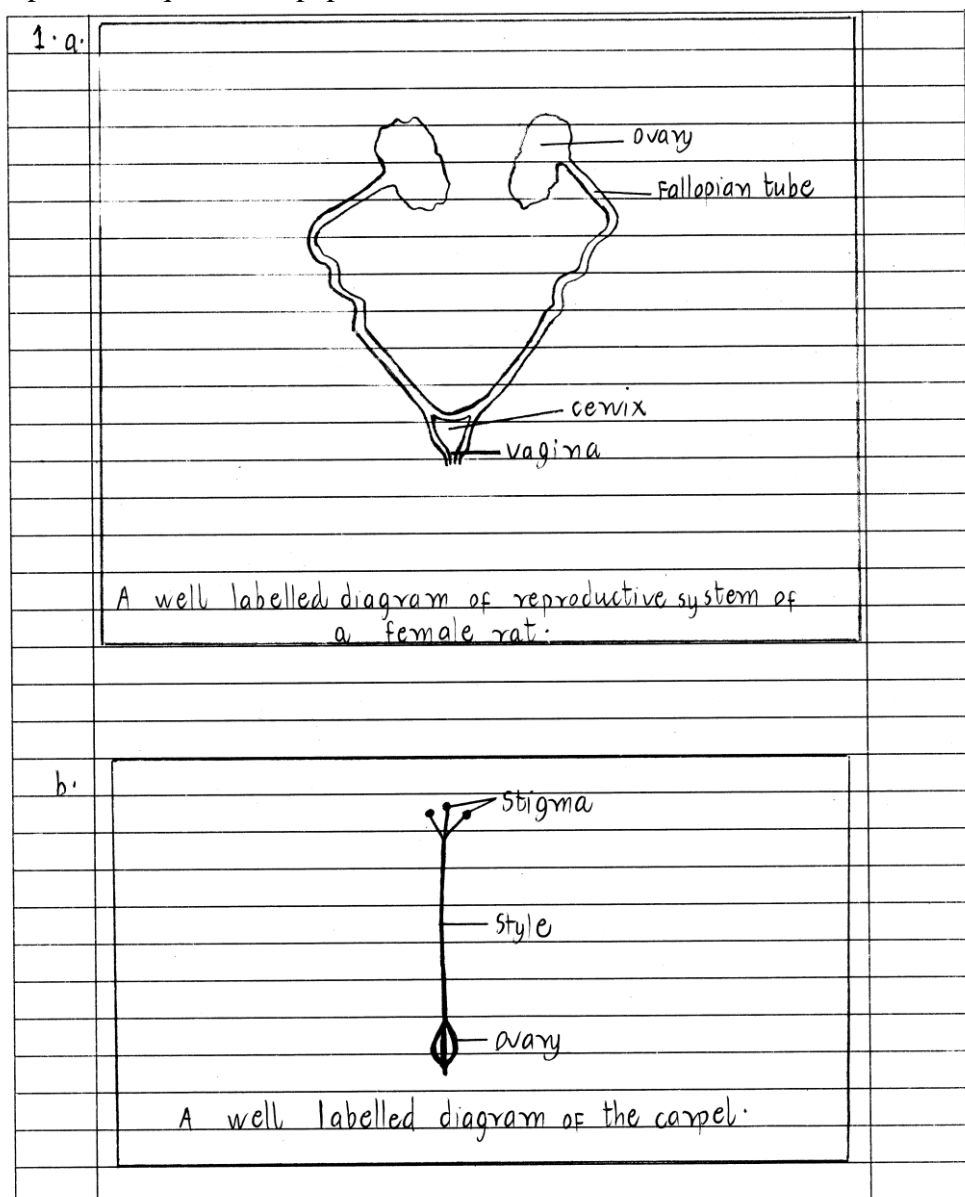 1. a.
Ovary
Fallopian tube
cervix
vagina
A well labelled diagram of reproductive system of
a female rat.
b.
Stigma
Style
Ovary
A well labelled diagram of the carpel.